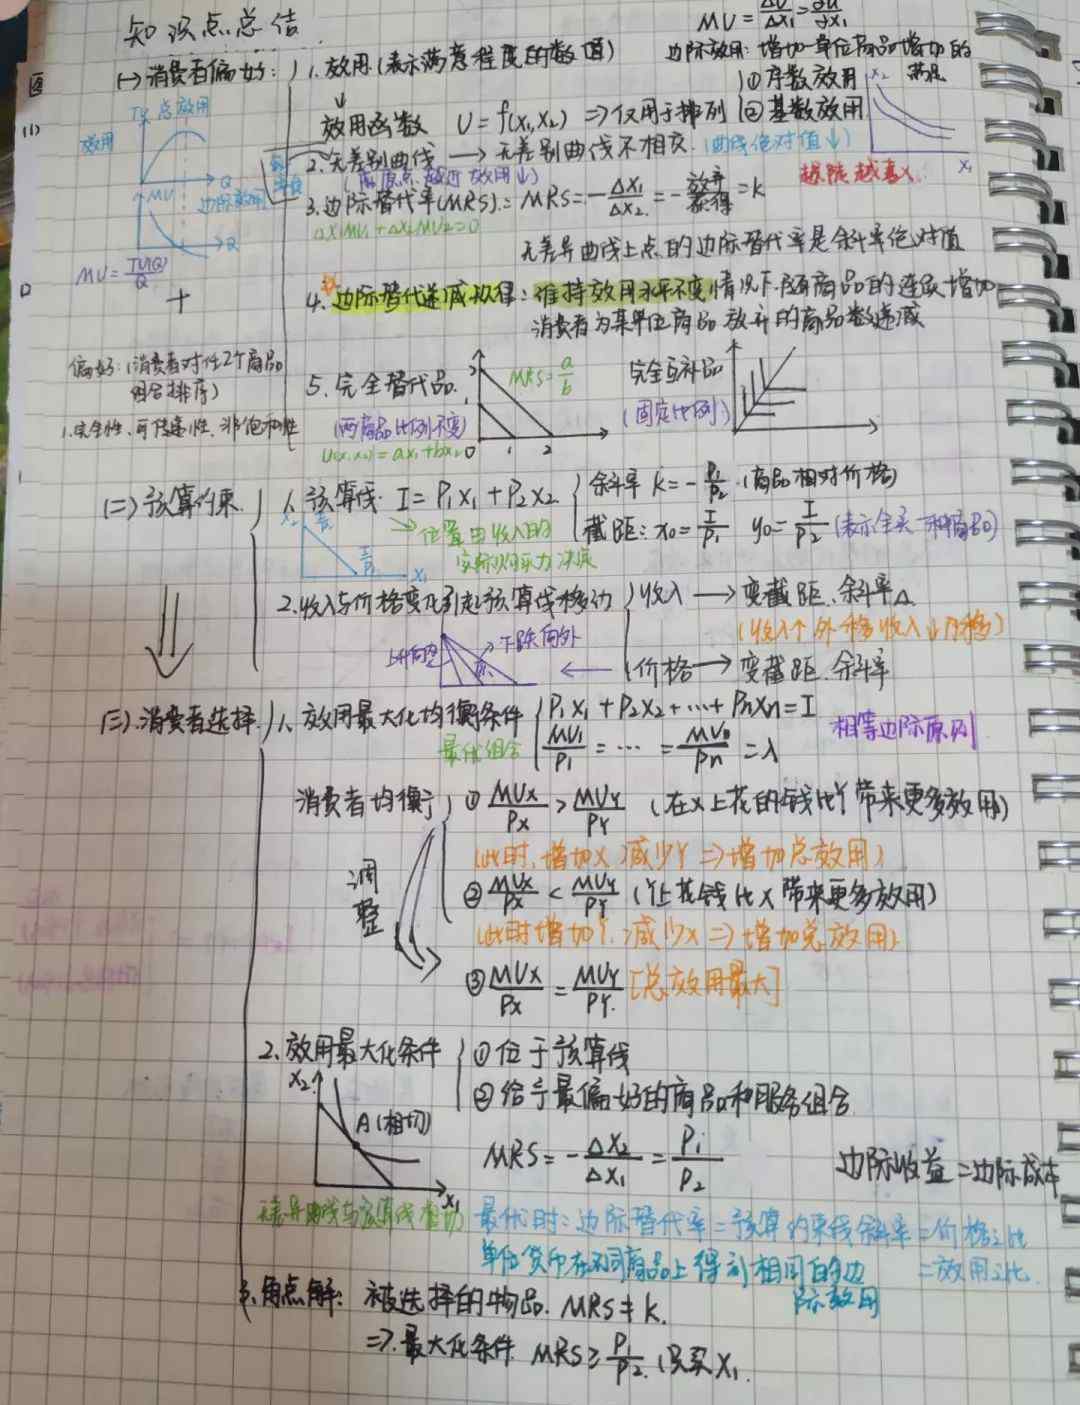 知识点总结
MU = ΔU/ΔX₁ = ∂U/∂X₁
(一)消费者偏好:
1. 效用(表示满意程度的数值)
边际效用: 增加一单位商品增加的满足
TU 总效用
效用
Q
MU
边际效用
Q
MU = TU(Q)/Q
↓
效用函数 U = f(X₁,X₂) ⇒ 仅用于排列
① 序数效用
② 基数效用
X₂
X₁
2. 无差别曲线 → 无差别曲线不相交 (曲线绝对值↓)
(离原点越近效用↓)
3. 边际替代率(MRS): MRS = -ΔX₁/ΔX₂ = -放弃/获得 = k
ΔX₁MU₁ + ΔX₂MU₂ = 0
无差异曲线上点的边际替代率是斜率绝对值
+
4. 边际替代递减规律: 维持效用水平不变情况下,随商品的连续增加
消费者为某单位商品放弃的商品数递减
偏好:(消费者对任2个商品
组合排序)
1.完全性、可传递性、非饱和性
5. 完全替代品
MRS = a/b
(两商品比例不变)
U(X₁,X₂) = aX₁+bX₂
0 1 2
完全互补品
(固定比例)
(二)预算约束
1. 预算线 I = P₁X₁ + P₂X₂
斜率 k = -P₁/P₂ (商品相对价格)
截距: x₀ = I/P₁ y₀ = I/P₂ (表示全买一种商品)
→ 位置由收入的
实际购买力决定
X₂
X₁
2. 收入与价格变化引起预算线移动
收入 → 变截距、斜率△
(收入↑外移 收入↓内移)
下跌向外
价格 → 变截距、斜率
(三)消费者选择
1. 效用最大化均衡条件
P₁X₁ + P₂X₂ + ⋯ + PnXn = I
MU₁/P₁ = ⋯ = MUn/Pn = λ
相等边际原则
最优组合
消费者均衡
① MUx/Px > MUY/PY (在X上花的钱比Y带来更多效用)
(此时,增加X,减少Y ⇒ 增加总效用)
调整
② MUx/Px < MUY/PY (Y上花钱比X带来更多效用)
(此时增加Y,减少X ⇒ 增加总效用)
③ MUx/Px = MUY/PY [总效用最大]
2. 效用最大化条件
① 位于预算线
② 给予最偏好的商品和服务组合
X₂
A(相切)
X₁
MRS = -ΔX₂/ΔX₁ = P₁/P₂
边际收益=边际成本
无差异曲线与预算线相切
最优时: 边际替代率=预算约束线斜率=价格之比
=效用之比
单位货币在不同商品上得到相同的边
际效用
3. 角点解: 被选择的物品. MRS ≠ k.
⇒ 最大化条件 MRS ≥ P₁/P₂ (只买X₁